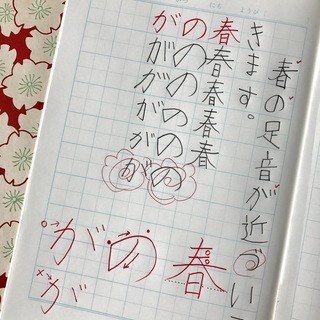 にち ようび
春の足音が近づいて
きます。
春春春春春春
のののののの
がががががが
春
の
が
が